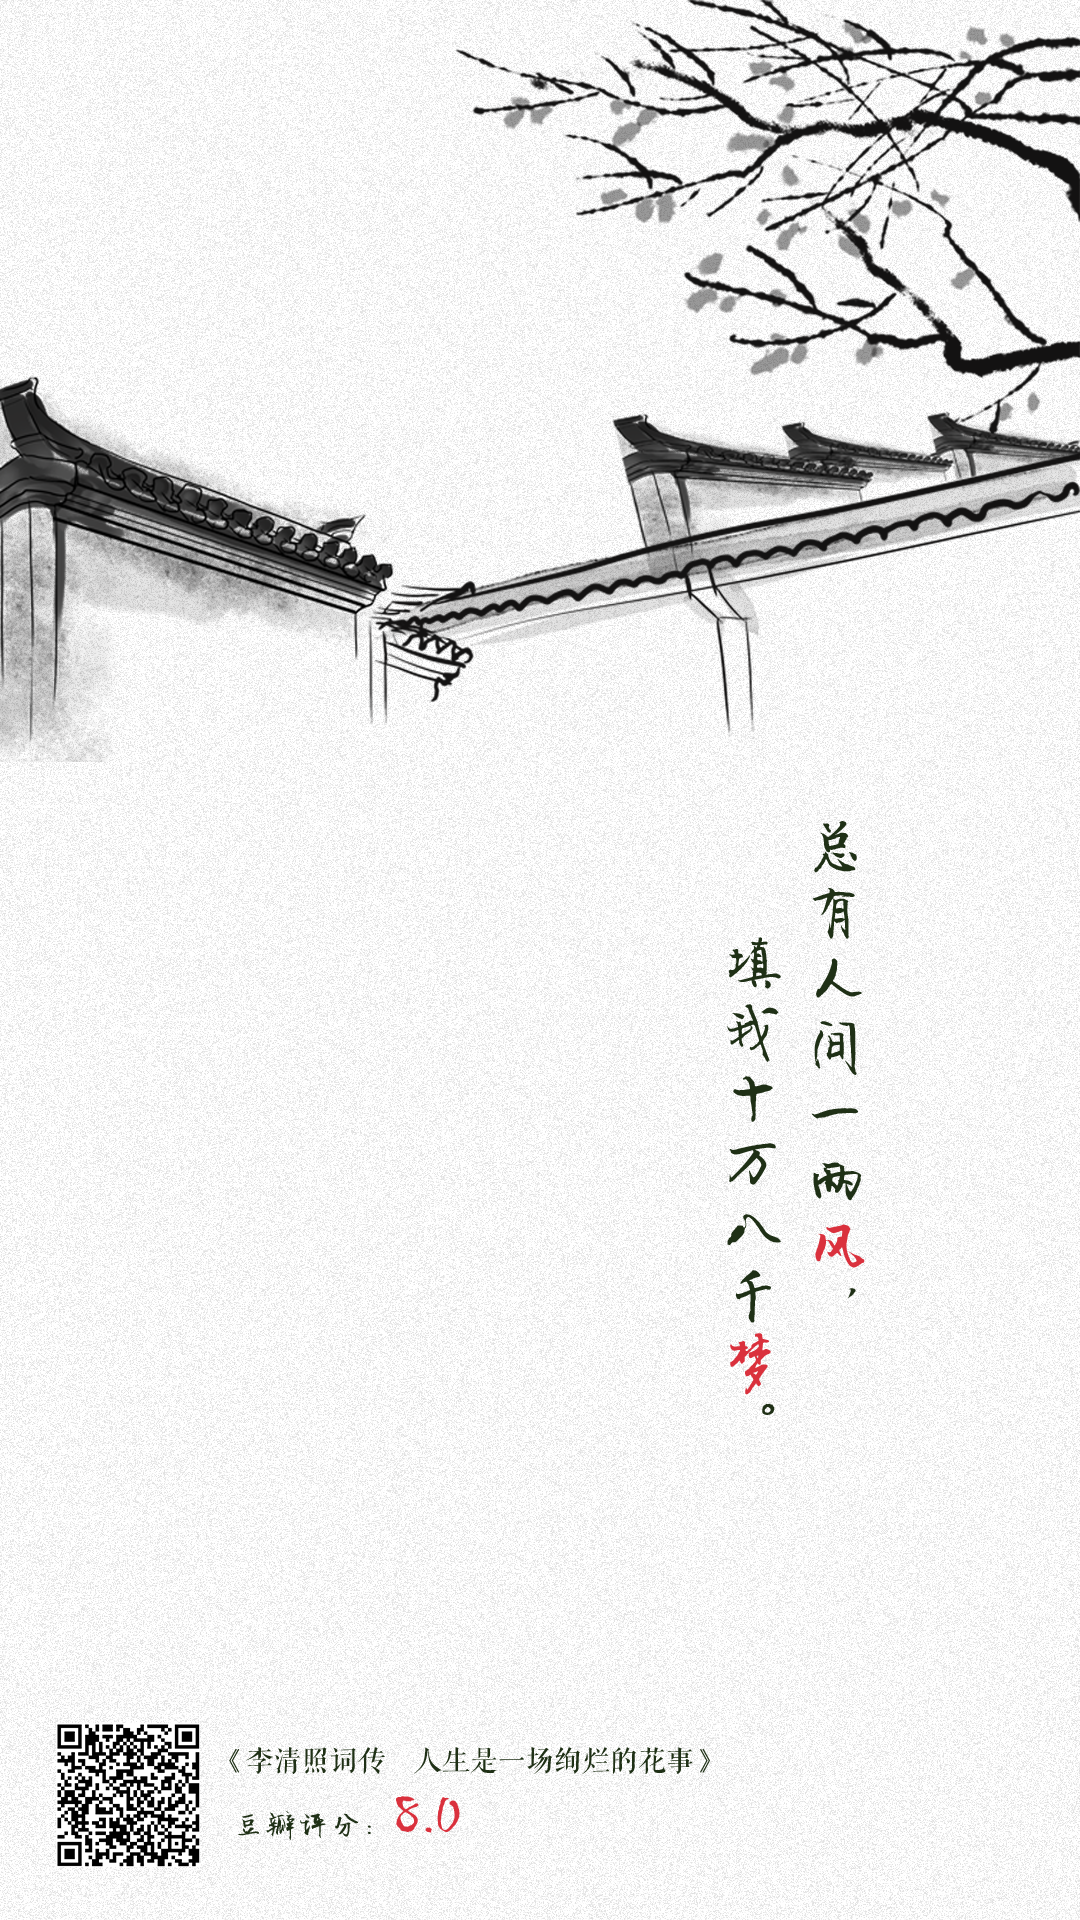 总有人间一两风，
填我十万八千梦。
《李清照词传　人生是一场绚烂的花事》
豆瓣评分：8.0